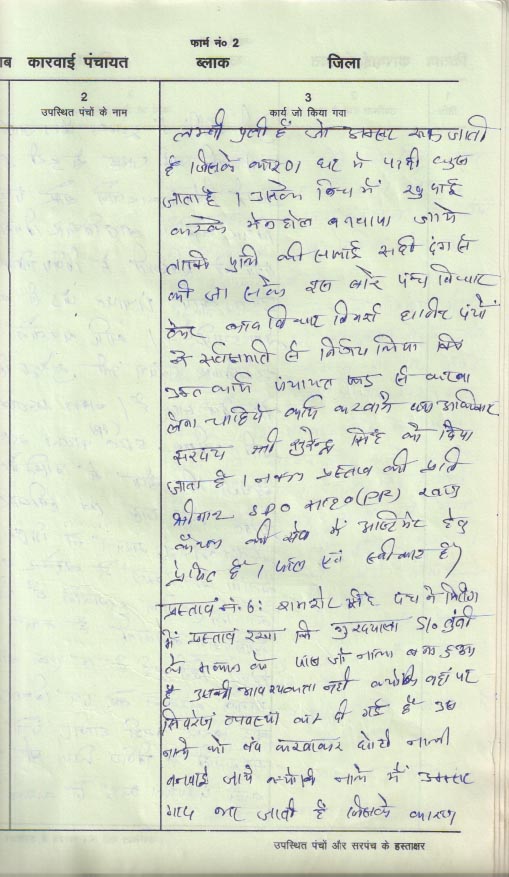 फार्म नं० 2
ब कारवाई पंचायत ब्लाक जिला
2 3
उपस्थित पंचों के नाम कार्य जो किया गया
लम्बी पुली है जो अक्सर रूक जाती
है जिसके कारण घर मे पानी घुस
जाता है । उसके बिच में खुदाई
करके मेनहोल बनवाया जाये
ताकि पुली की सफाई सही ढंग से
की जा सके इस बारे पंच विचार
बाद विचार विमर्श हाजीर पंचों
ने सर्वसम्मति से निर्णय लिया कि
उक्त कार्य पंचायत फण्ड से करवा
लेना चाहिये कार्य करवाने का अधिकार
सरपंच श्री सुरेन्द्र सिंह को दिया
जाता है । नकल प्रस्ताव की प्रति
श्रीमान SDO (PR)
कैथल की सेवा में एस्टिमेट हेतु
प्रेषित है । पास एवं स्वीकार है)
प्रस्ताव नं. 6: सिंह पंच ने मिटिंग
में प्रस्ताव रखा कि गुरदयाला S/o मुंशी
के मकान के पास जो नाला बना हुआ
है उसकी आवश्यकता नहीं क्योंकि वहां पर
सिवरेज व्यवस्था कर दी गई है उस
नाले को बंद करवाकर छोटी नाली
बनवाई जाये क्योंकि नाले में अक्सर
गाद भर जाती है जिसके कारण
उपस्थित पंचों और सरपंच के हस्ताक्षर